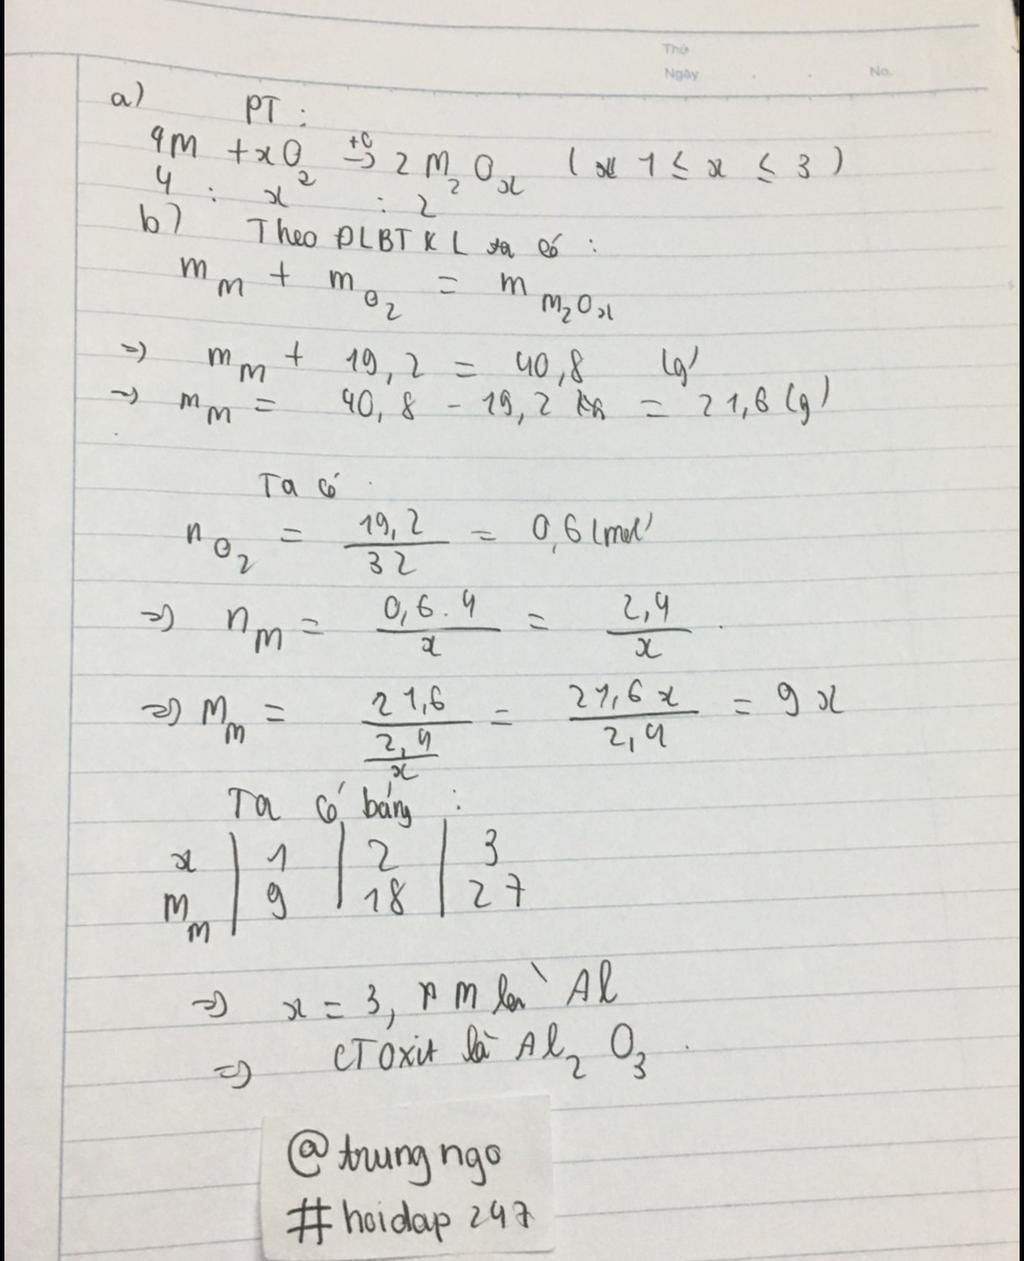 Thứ
Ngày . . No.
a) PT :
4M + xO₂ →(t°) 2M₂Oₓ ( 1 ≤ x ≤ 3 )
4 : x : 2
b) Theo ĐLBTKL ta có :
m_M + m_O₂ = m_M₂Oₓ
=> m_M + 19,2 = 40,8 (g)
=> m_M = 40,8 - 19,2 = 21,6 (g)
Ta có
n_O₂ = 19,2/32 = 0,6 (mol)
=> n_M = 0,6.4/x = 2,4/x .
=> M_M = 21,6/(2,4/x) = 21,6x/2,4 = 9x
Ta có bảng :
x | 1 | 2 | 3
M_M | 9 | 18 | 27
=> x = 3, M là Al
=> CT Oxit là Al₂O₃ .
@trungngo
#hoidap247